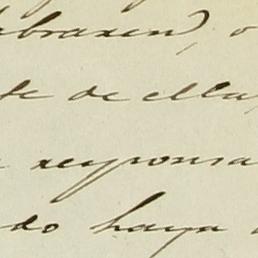 abrasen, o
te de ella,
responsa
do haya